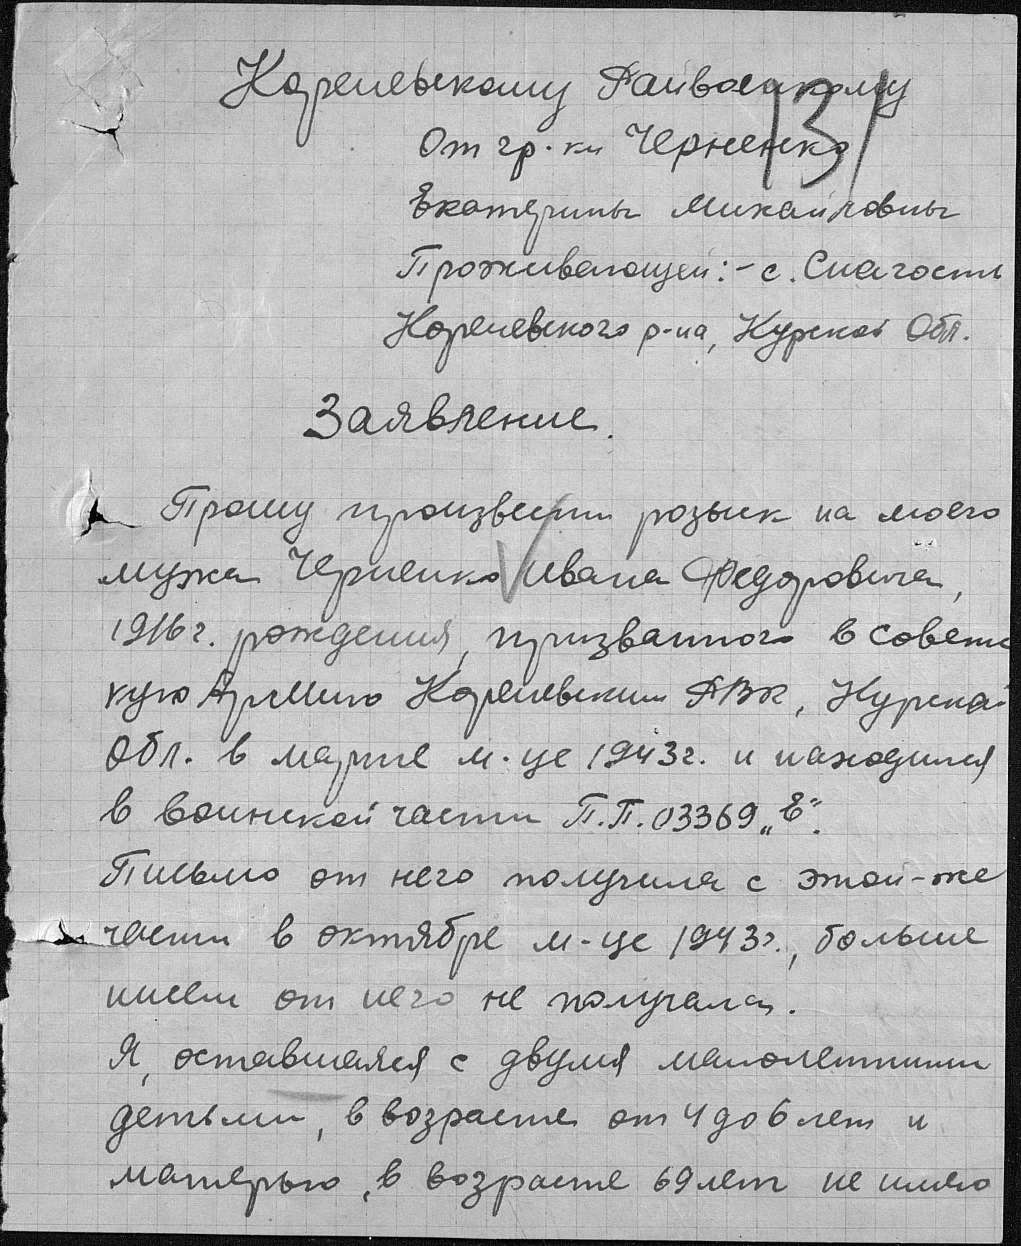 Кореневскому Райвоенкому
131
От гр-ки Черненко
Екатерины Михайловны
Проживающей:- с. Снагость
Кореневского р-на, Курской Обл.
Заявление.
Прошу произвести розыск на моего
мужа Черненко Ивана Федоровича,
1916 г. рождения, призванного в Советс
кую Армию Кореневским РВК, Курской
Обл. в марте м-це 1943 г. и находился
в воинской части П.П. 03369 „Е".
Письмо от него получила с этой-же
части в октябре м-це 1943 г., больше
писем от него не получала.
Я, оставшаяся с двумя малолетними
детьми, в возрасте от 4 до 6 лет и
матерью, в возрасте 69 лет не имею